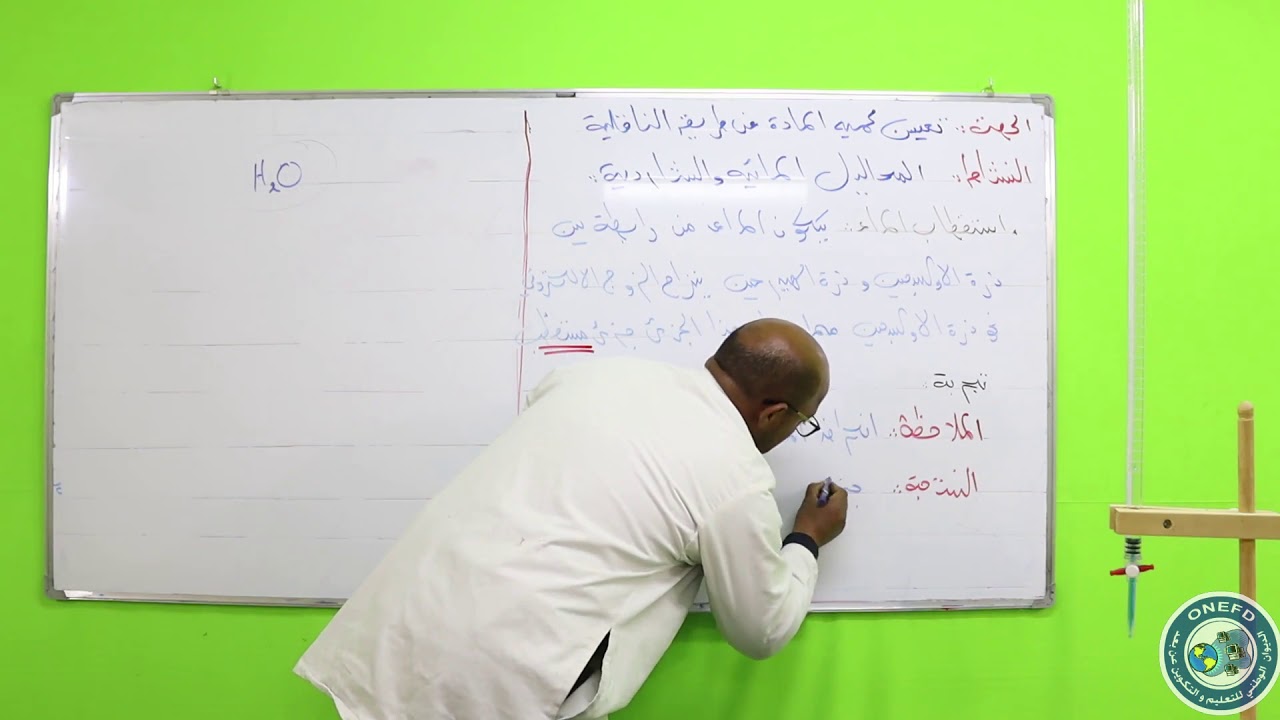 تعيين كمية المادة عن طريق الناقلية
المحاليل المائية والشاردية
استقطاب الماء: يتكون الماء من رابطة بين
ذرة الأوكسجين و ذرة الهيدروجين ينزاح الزوج الالكتروني
ذرة الأوكسجين الجزيئ جزيئ مستقطب
تجربة
الملاحظة:
النتيجة:
H₂O
ONEFD
الديوان الوطني للتعليم و التكوين عن بعد